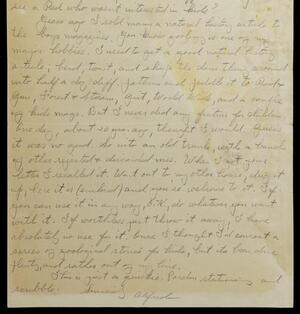 see a Deal who wasn't interested in kids?
Years ago I sold many a natural history article to
the Boys magazines. You know zoology is one of my
major hobbies. I used to get a good natural history
article; hand, two it, and
into half a doz diff patterns and peddle it to
Gun, Forest & Stream, Grit, World Wide, and a couple
of kids mags. But I never did any fiction for children.
One day, about 20 yrs ago, thought I would. Guess
it was no good. So into an old trunk, with a bunch
of other rejected & discarded mss. When I got your
letter I recalled it. Went out to my other house, dug it
up, here it is (enclosed) and you're welcome to it. If
you can use it in any way, O.K., do whatever you want
with it. If worthless just throw it away, I have
absolutely no use for it. Once I thought I'd concoct a
series of zoological stories for kids, but its been done
plenty, and rather out of my line.
This is just a quickie. Pardon stationery and
scribble. Sincerely Alfred